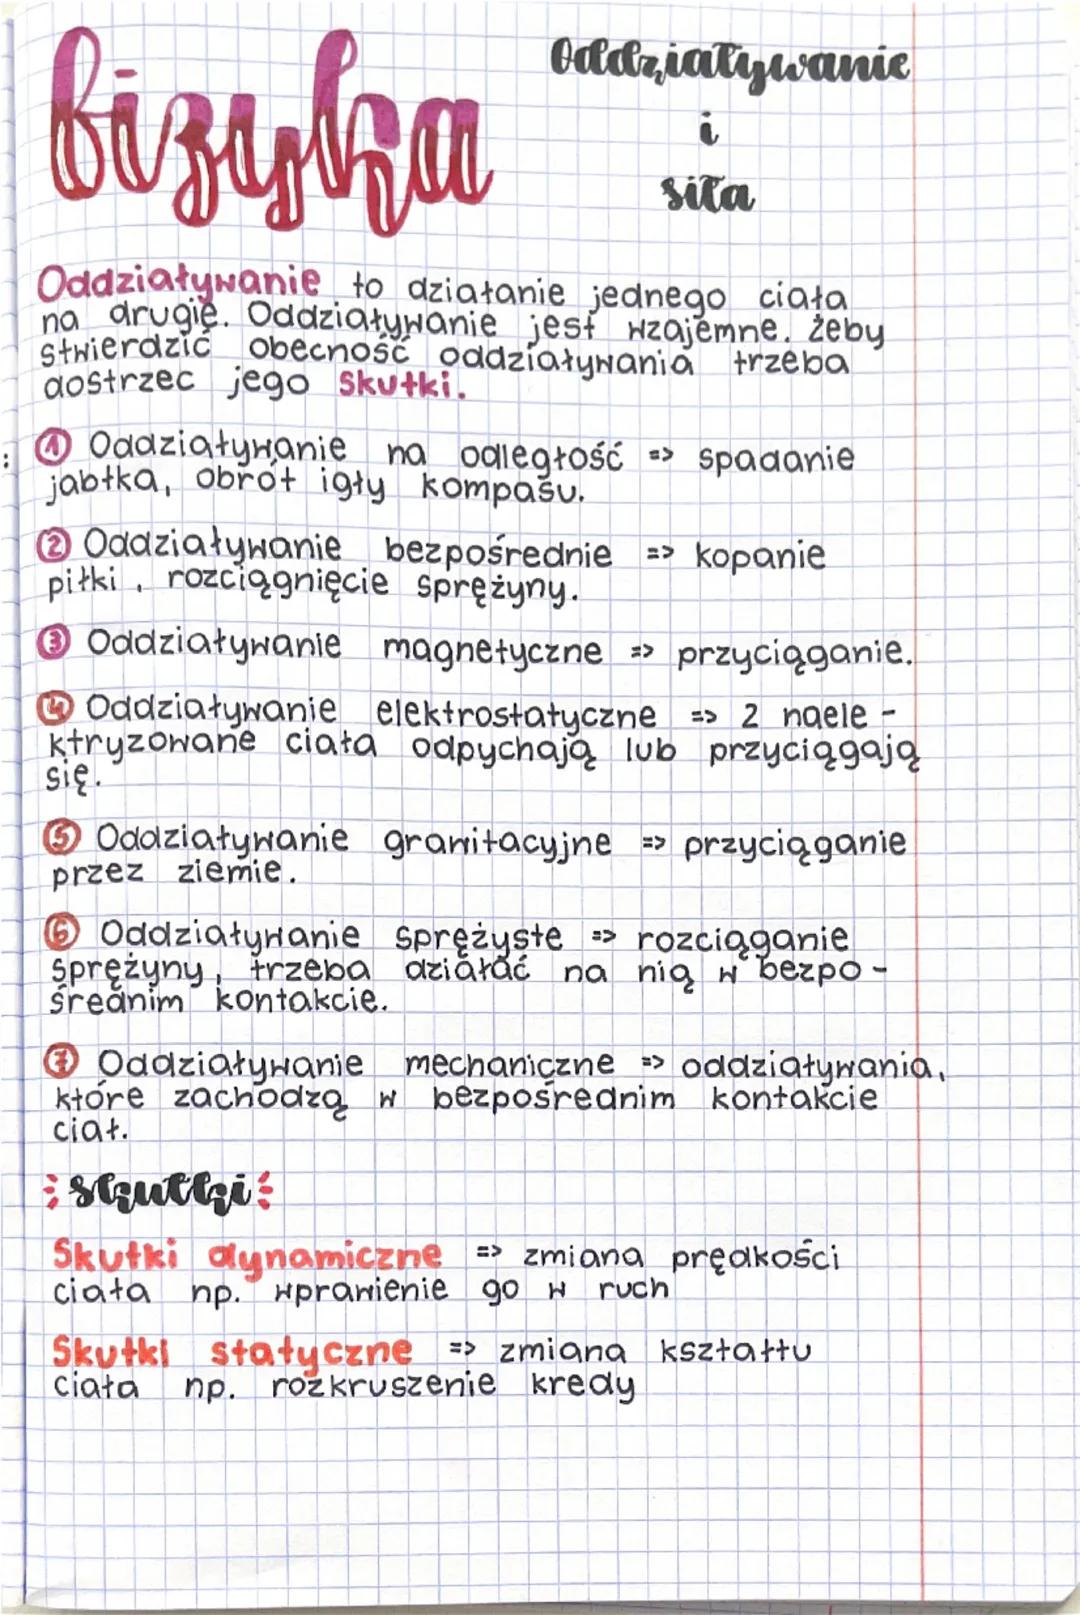 fizyka
Oddziaływanie
i
siła
Oddziaływanie to działanie jednego ciała
na drugie. Oddziaływanie jest wzajemne. Żeby
stwierdzić obecność oddziaływania trzeba
dostrzec jego skutki.
① Oddziaływanie na odległość => spadanie
jabłka, obrót igły kompasu.
② Oddziaływanie bezpośrednie => kopanie
piłki, rozciągnięcie sprężyny.
③ Oddziaływanie magnetyczne => przyciąganie.
④ Oddziaływanie elektrostatyczne => 2 naele-
ktryzowane ciała odpychają lub przyciągają
się.
⑤ Oddziaływanie grawitacyjne => przyciąganie
przez ziemie.
⑥ Oddziaływanie sprężyste => rozciąganie
sprężyny, trzeba działać na nią w bezpo-
średnim kontakcie.
⑦ Oddziaływanie mechaniczne => oddziaływania,
które zachodzą w bezpośrednim kontakcie
ciał.
skutki
Skutki dynamiczne => zmiana prędkości
ciała np. wprawienie go w ruch
Skutki statyczne => zmiana kształtu
ciała np. rozkruszenie kredy